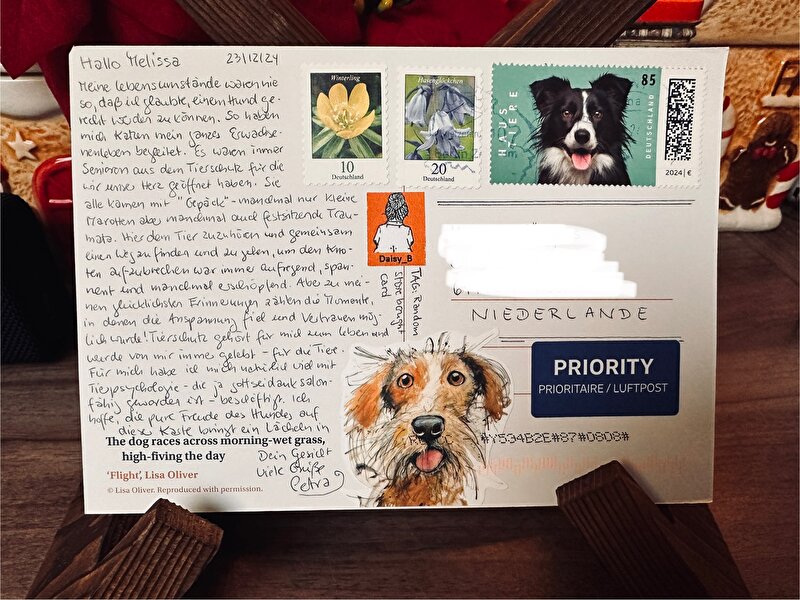 Hallo Melissa 23/12/24
Meine Lebensumstände waren nie
so, daß ich glaubte, einen Hund ge-
recht werden zu können. So haben
mich Katzen mein ganzes Erwachse-
nenleben begleitet. Es waren immer
Senioren aus dem Tierschutz für die
wir unser Herz geöffnet haben. Sie
alle kamen mit "Gepäck" - manchmal nur kleine
Marotten aber manchmal auch festsitzende Trau-
mata. Hier dem Tier zuzuhören und gemeinsam
einen Weg zu finden und zu gehen, um den Kno-
ten aufzubrechen war immer aufregend, span-
nend und manchmal erschöpfend. Aber zu mei-
nen glücklichsten Erinnerungen zählen die Momente,
in denen die Anspannung fiel und Vertrauen mög-
lich wurde! Tierschutz gehört für mich zum Leben und
wurde von mir immer gelebt - für die Tiere.
Für mich habe ich mich natürlich viel mit
Tierpsychologie - die ja gottseidank salon-
fähig geworden ist - beschäftigt. Ich
hoffe, die pure Freude des Hundes auf
dieser Karte bringt ein Lächeln in
Dein Gesicht
Viele Grüße
Petra
The dog races across morning-wet grass,
high-fiving the day
'Flight', Lisa Oliver
© Lisa Oliver. Reproduced with permission.
Winterling
10
Deutschland
Hasenglöckchen
20
Deutschland
HAUSTIERE
85
DEUTSCHLAND
2024 | €
Daisy_B
TAG: Random
store bought
card
NIEDERLANDE
PRIORITY
PRIORITAIRE / LUFTPOST
#Y534B2E#87#0808#